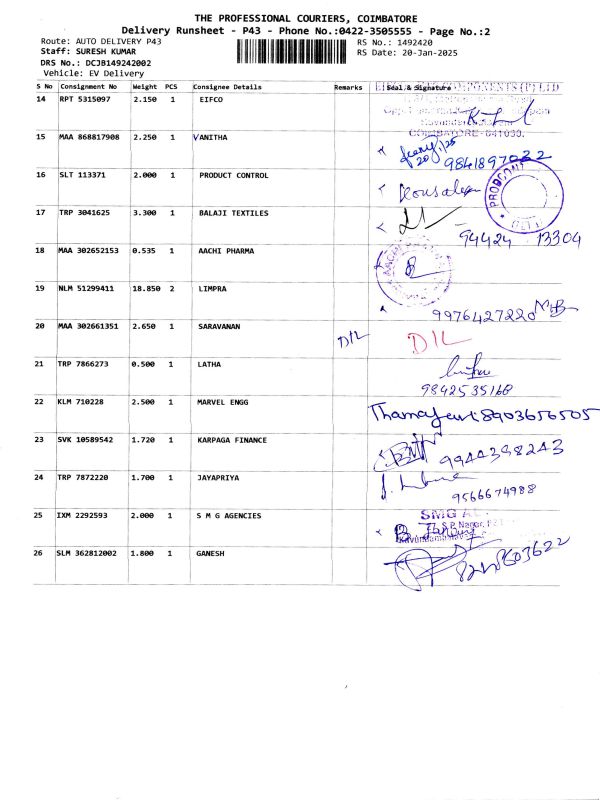 THE PROFESSIONAL COURIERS, COIMBATORE
Delivery Runsheet - P43 - Phone No.:0422-3505555 - Page No.:2
Route: AUTO DELIVERY P43 RS No.: 1492420
Staff: SURESH KUMAR RS Date: 20-Jan-2025
DRS No.: DCJB149242002
Vehicle: EV Delivery
S No Consignment No Weight PCS Consignee Details Remarks Seal & Signature
14 RPT 5315097 2.150 1 EIFCO
COIMBATORE-641030.
15 MAA 868817908 2.250 1 VANITHA
9841897022
16 SLT 113371 2.000 1 PRODUCT CONTROL
17 TRP 3041625 3.300 1 BALAJI TEXTILES
94424 13304
18 MAA 302652153 0.535 1 AACHI PHARMA
19 NLM 51299411 18.850 2 LIMPRA
9976427220
20 MAA 302661351 2.650 1 SARAVANAN D/L D/L
21 TRP 7866273 0.500 1 LATHA
9842535168
22 KLM 710228 2.500 1 MARVEL ENGG
8903656505
23 SVK 10589542 1.720 1 KARPAGA FINANCE
9944398243
24 TRP 7872220 1.700 1 JAYAPRIYA
9566674988
25 IXM 2292593 2.000 1 S M G AGENCIES SMG
26 SLM 362812002 1.800 1 GANESH